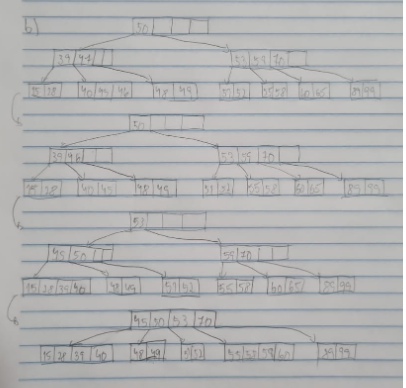 b)
50
39 47
53 59 70
25 28
40 45 46
48 49
51 52
55 58
60 65
89 99
50
39 46
53 55 70
25 28
40 45
48 49
51 52
55 58
60 65
89 99
53
45 50
59 70
25 28 39 40
48 49
51 52
55 58
60 65
89 99
45 50 53 70
25 28 39 40
48 49
51 52
55 58 59 60
89 99